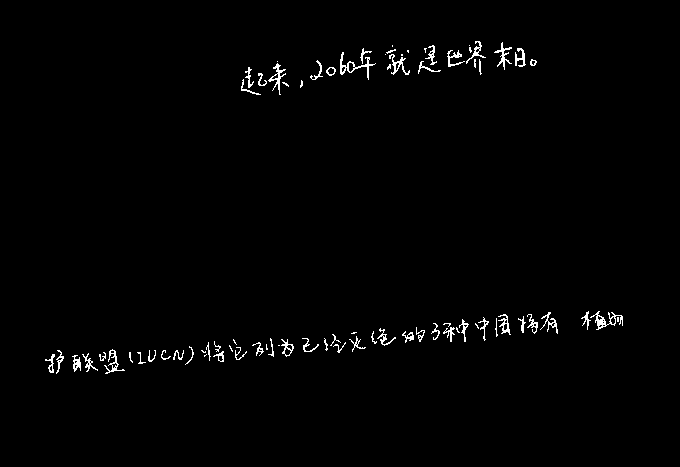 起来,2060年就是世界末日。
护联盟(IUCN)将它列为已经灭绝的3种中国特有植物